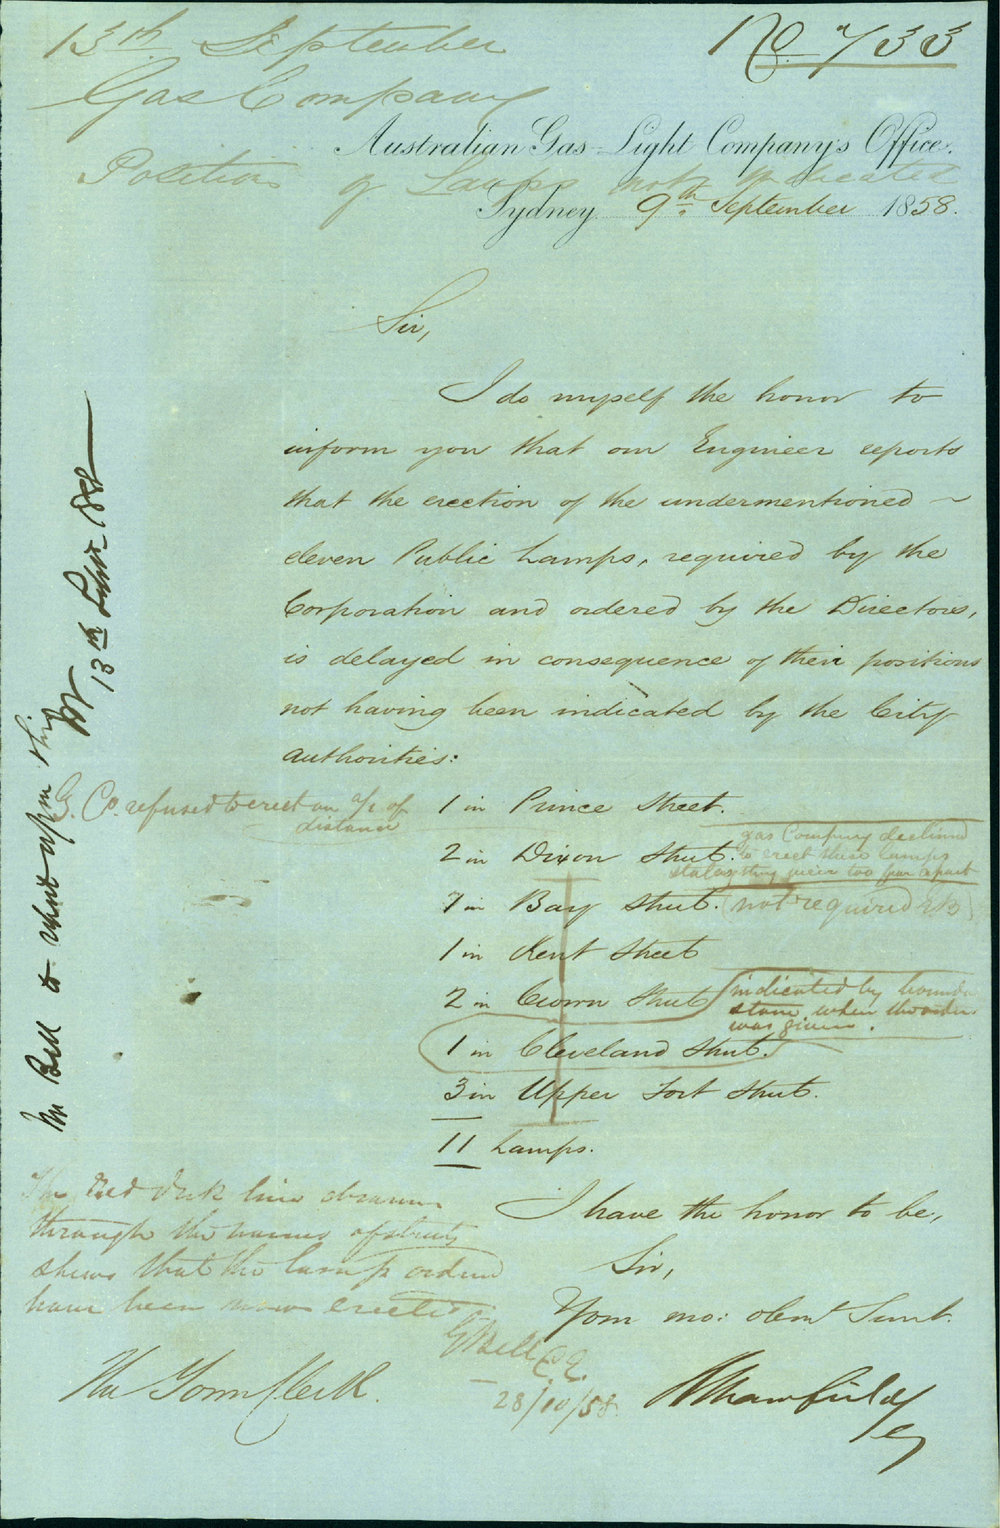 13th September
No. 733
Gas Company
Australian Gas-Light Company's Office.
Position of Lamps not indicated
Sydney 9th September 1858.
Sir,
I do myself the honor to
inform you that our Engineer reports
that the erection of the undermentioned ~
eleven Public Lamps, required by the
Corporation and ordered by the Directors,
is delayed in consequence of their positions
not having been indicated by the City
Authorities:
G. Co. refused to erect on a/c of
distance
1 in Prince Street.
2 in Dixon Street.
gas Company declined
to erect these lamps
stating they were too far apart
7 in Bay Street. (not required GB)
1 in Kent Street
2 in Crown Street
indicated by
stone when the order
was given.
1 in Cleveland Street.
3 in Upper Fort Street.
11 Lamps.
Mr Bell to report upon this
13th Septr 1858
The Red Ink line drawn
through the names of streets
shews that the lamps ordered
have been now erected
GBell C.E.
28/10/58
I have the honor to be,
Sir,
Your mo: obent Servt.
RMansfield
The Town Clerk.